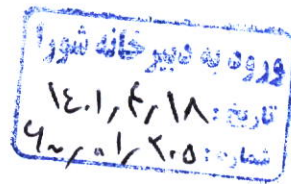 ورود به دبیرخانه شورا
تاریخ: ۱۴۰۱/۴/۱۸
شماره: ۶۰/۰۱/۲۰۵